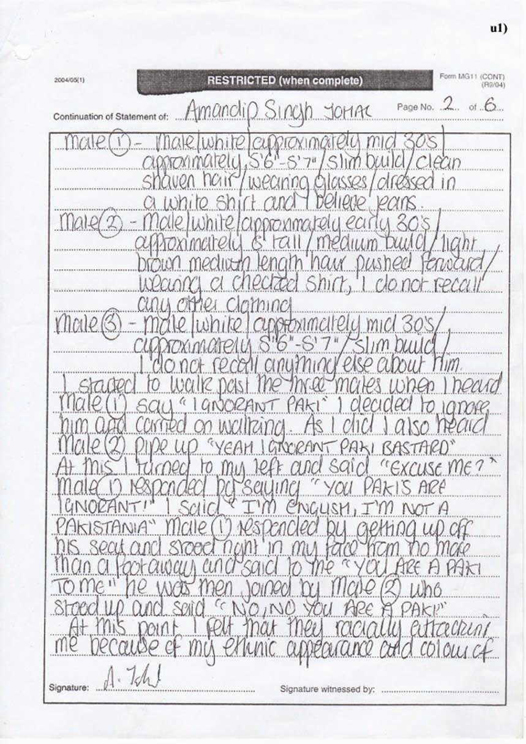 u1)
2004/05(1)
RESTRICTED (when complete)
Form MG11 (CONT)
(R9/04)
Continuation of Statement of: Amandip Singh JOHAL Page No. 2 of 6
Male (1) - Male/white/approximately mid 30's/
approximately 5'6"-5'7"/slim build/clean
shaven hair/wearing glasses/dressed in
a white shirt and I believe jeans.
Male (2) - Male/white/approximately early 30's/
approximately 6' tall/medium build/light
brown medium length hair pushed forward/
wearing a checked shirt, I do not recall
any other clothing
Male (3) - male/white/approximately mid 30's/
approximately 5'6"-5'7"/slim build/
I do not recall anything else about him.
I started to walk past the three males when I heard
Male (1) say "IGNORANT PAKI" I decided to ignore
him and carried on walking. As I did I also heard
Male (2) pipe up "YEAH IGNORANT PAKI BASTARD"
At this I turned to my left and said "EXCUSE ME?"
Male (1) responded by saying "YOU PAKI'S ARE
IGNORANT!" I said "I'M ENGLISH, I'M NOT A
PAKISTANIA" Male (1) responded by getting up off
his seat and stood right in my face from no more
than a foot away and said to me "YOU ARE A PAKI
TO ME" he was then joined by Male (2) who
stood up and said "NO, NO YOU ARE A PAKI"
At this point I felt that they racially
me because of my ethnic appearance and colour of
Signature:
Signature witnessed by: